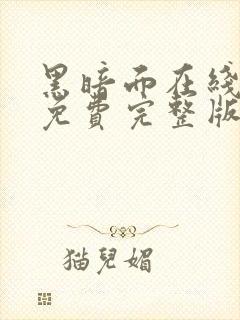 黑暗而在綫
免費完整版
猫兒媚